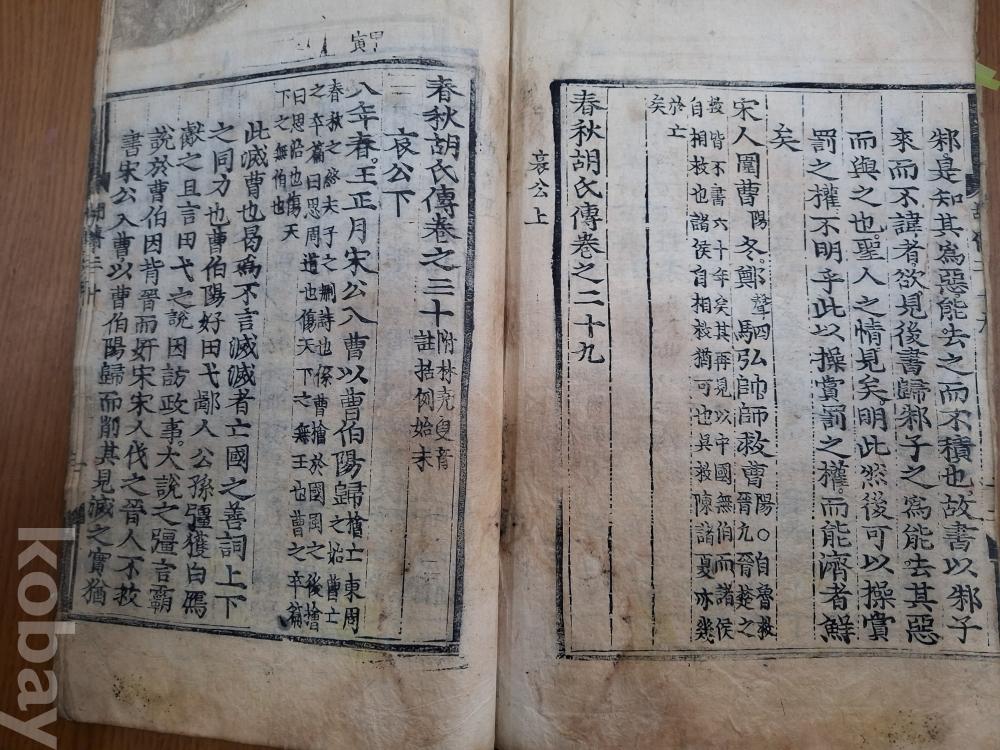 邾是知其爲惡能去之而不積也故書以邾子
來而不諱者欲見後書歸邾子之爲能去其惡
而與之也聖人之情見矣明此然後可以操賞
罰之權不明乎此以操賞罰之權而能濟者鮮
矣
宋人圍曹陽冬鄭聲四駟弘帥師救曹陽〇自魯救晉亢晉楚之
救皆不書六十年矣其再見以中國無伯而諸侯
自相救也諸侯自相救猶可也吳救陳諸夏亦幾
於亡
矣
春秋胡氏傳卷之二十九
哀公上
甲寅
春秋胡氏傳卷之三十附林堯叟音註括例始末
哀公下
八年春王正月宋公入曹以曹伯陽歸檜亡東周之始曹亡
春秋之終夫子之刪詩也係曹檜於國風之後檜
之卒篇曰思周道也傷天下之無王也曹之卒篇
曰思治也傷天
下之無伯也
此滅曹也曷爲不言滅滅者亡國之善詞上下
之同力也曹伯陽好田弋鄙人公孫彊獲白鴈
獻之且言田弋之說因訪政事大說之彊言霸
說於曹伯因背晉而奸宋宋人伐之晉人不救
書宋公入曹以曹伯陽歸而削其見滅之實猶
kobay